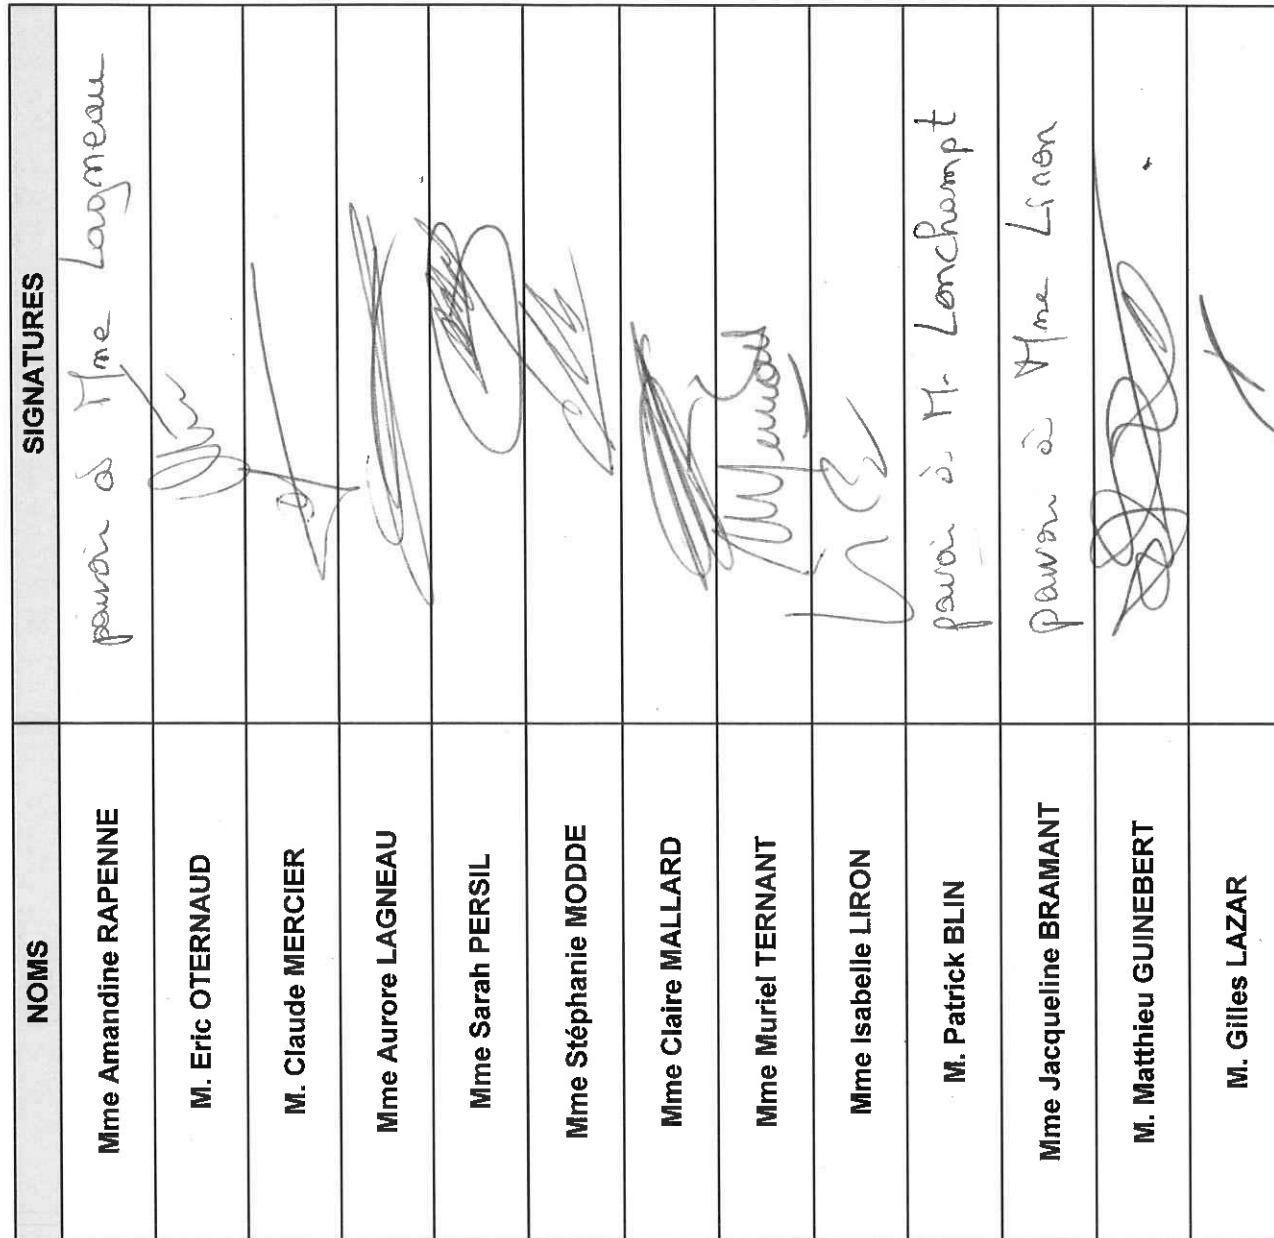 NOMS SIGNATURES
Mme Amandine RAPENNE pouvoir à Mme Lagneau
M. Eric OTERNAUD
M. Claude MERCIER
Mme Aurore LAGNEAU
Mme Sarah PERSIL
Mme Stéphanie MODDE
Mme Claire MALLARD
Mme Muriel TERNANT
Mme Isabelle LIRON
M. Patrick BLIN pouvoir à M. Lonchampt
Mme Jacqueline BRAMANT pouvoir à Mme Liron
M. Matthieu GUINEBERT
M. Gilles LAZAR